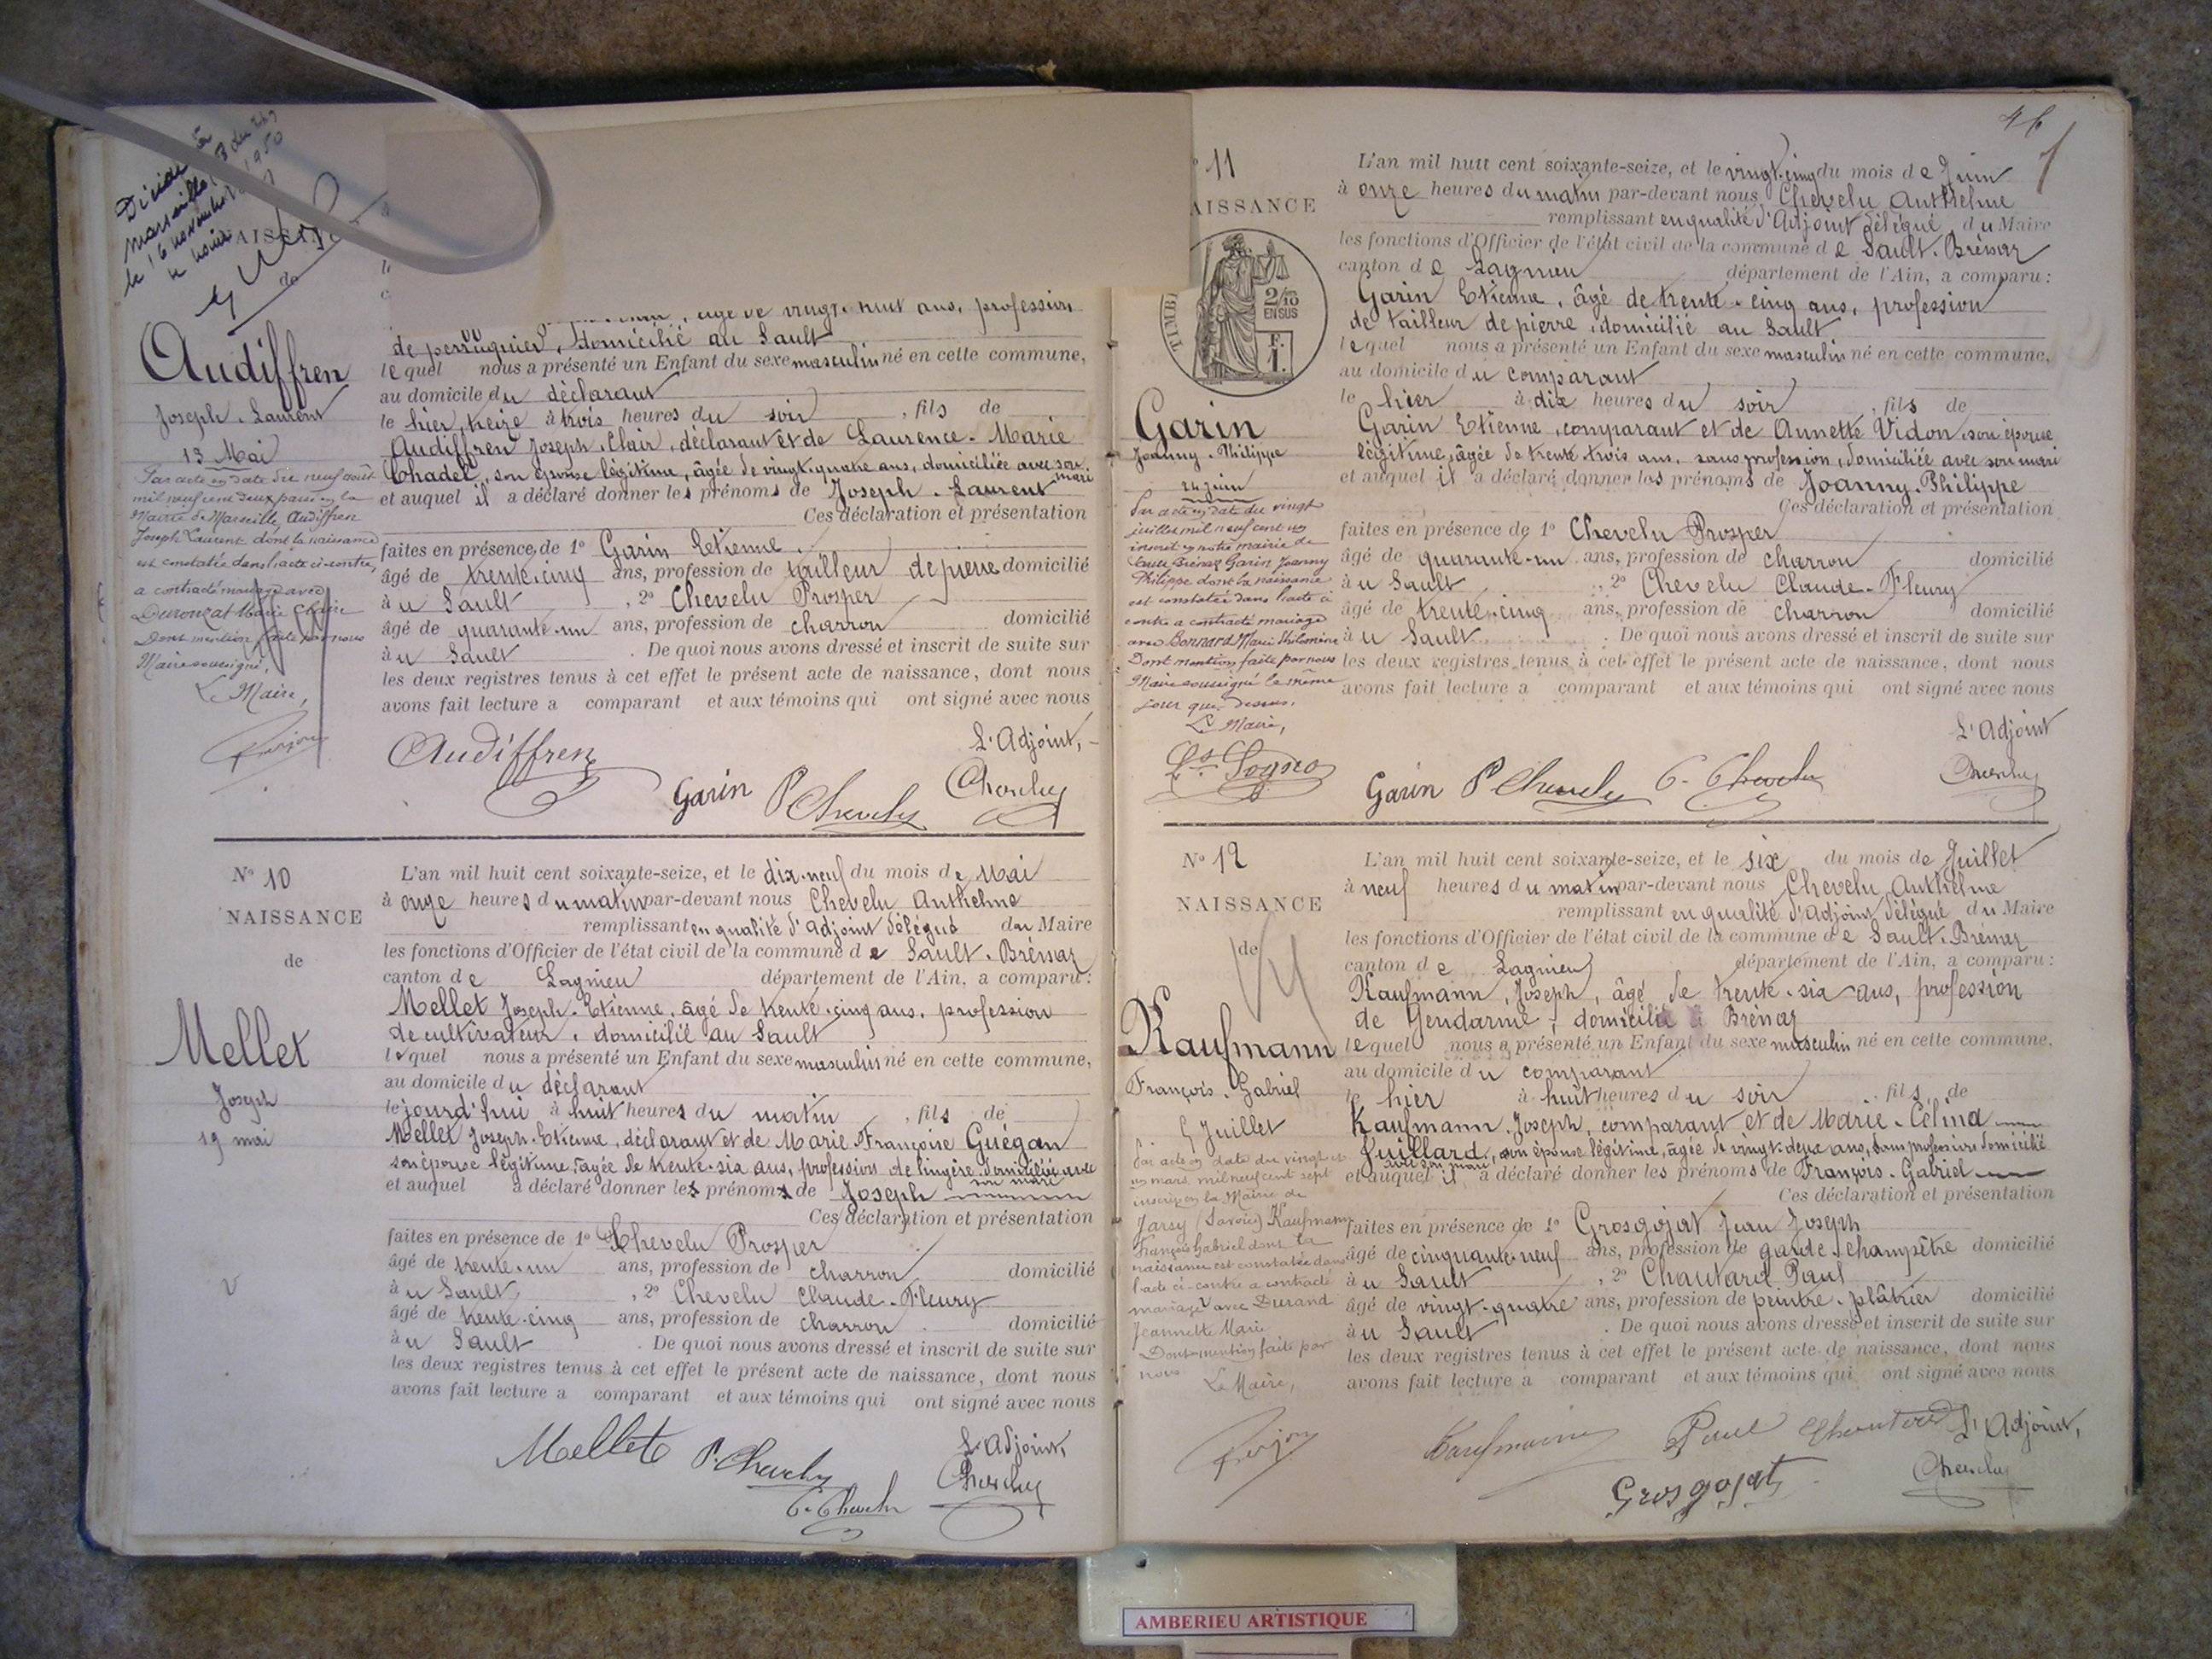 Décédé à
Marseille
le 16 novembre 1950
NAISSANCE
de
Audiffren
Joseph-Laurent
13 Mai
Par acte en date du neuf août
mil neuf cent deux passé en la
Mairie de Marseille, Audiffren
Joseph Laurent dont la naissance
est constatée dans l'acte ci-contre,
a contracté mariage avec
Duronzat Marie Claire
Dont mention faite par nous
Maire soussigné,
Le Maire,
âgé de vingt-huit ans, profession
de perruquier, domicilié au Sault
lequel nous a présenté un Enfant du sexe masculin né en cette commune,
au domicile du déclarant
le hier, treize à trois heures du soir, fils de
Audiffren Joseph, Clair, déclarant et de Laurence-Marie
Chadel, son épouse légitime, âgée de vingt-quatre ans, domiciliée avec son mari
et auquel il a déclaré donner les prénoms de Joseph-Laurent
Ces déclaration et présentation
faites en présence de 1º Garin Etienne,
âgé de trente-cinq ans, profession de tailleur de pierre domicilié
à u Sault, 2º Chevelu Prosper
âgé de quarante-un ans, profession de charron domicilié
à u Sault. De quoi nous avons dressé et inscrit de suite sur
les deux registres tenus à cet effet le présent acte de naissance, dont nous
avons fait lecture a comparant et aux témoins qui ont signé avec nous
L'Adjoint,
Audiffren
Garin P Chevelu Chevelu
Nº 10
NAISSANCE
de
Mellet
Joseph
19 mai
L'an mil huit cent soixante-seize, et le dix-neuf du mois de Mai
à onze heures du matin par-devant nous Chevelu Anthelme
remplissant en qualité d'adjoint délégué du Maire
les fonctions d'Officier de l'état civil de la commune de Sault-Brénaz
canton de Lagnieu département de l'Ain, a comparu:
Mellet Joseph-Etienne, âgé de trente-cinq ans, profession
de cultivateur, domicilié au Sault
lequel nous a présenté un Enfant du sexe masculin né en cette commune,
au domicile du déclarant
le jourd'hui à huit heures du matin, fils de
Mellet Joseph-Etienne, déclarant et de Marie Françoise Guégan
son épouse légitime, âgée de trente-six ans, profession de lingère domiciliée avec
son mari
et auquel a déclaré donner les prénoms de Joseph
Ces déclaration et présentation
faites en présence de 1º Chevelu Prosper
âgé de trente-un ans, profession de charron domicilié
à u Sault, 2º Chevelu Claude-Fleury
âgé de trente-cinq ans, profession de charron domicilié
à u Sault. De quoi nous avons dressé et inscrit de suite sur
les deux registres tenus à cet effet le présent acte de naissance, dont nous
avons fait lecture a comparant et aux témoins qui ont signé avec nous
L'Adjoint,
Mellet P. Chevelu Chevelu
C. Chevelu
46
º 11
NAISSANCE
TIMBR
2/10
EN SUS
F.
1.
Garin
Joanny-Philippe
24 juin
Par acte en date du vingt
juillet mil neuf cent un
inscrit en notre mairie de
Sault Brénaz Garin Joanny
Philippe dont la naissance
est constatée dans l'acte ci
contre a contracté mariage
avec Bonnard Marie Philomène
Dont mention faite par nous
Maire soussigné le même
jour que dessus.
Le Maire,
L'an mil huit cent soixante-seize, et le vingt-cinq du mois de Juin
à onze heures du matin par-devant nous Chevelu Anthelme
remplissant en qualité d'Adjoint délégué du Maire
les fonctions d'Officier de l'état civil de la commune de Sault-Brénaz
canton de Lagnieu département de l'Ain, a comparu:
Garin Etienne, âgé de trente-cinq ans, profession
de tailleur de pierre, domicilié au Sault
lequel nous a présenté un Enfant du sexe masculin né en cette commune,
au domicile du comparant
le hier à dix heures du soir, fils de
Garin Etienne, comparant et de Annette Vidon, son épouse
légitime, âgée de trente trois ans, sans profession, domiciliée avec son mari
et auquel il a déclaré donner les prénoms de Joanny-Philippe
Ces déclaration et présentation
faites en présence de 1º Chevelu Prosper
âgé de quarante-un ans, profession de charron domicilié
à u Sault, 2º Chevelu Claude-Fleury
âgé de trente-cinq ans, profession de charron domicilié
à u Sault. De quoi nous avons dressé et inscrit de suite sur
les deux registres tenus à cet effet le présent acte de naissance, dont nous
avons fait lecture a comparant et aux témoins qui ont signé avec nous
L'Adjoint
Garin P Chevelu C. Chevelu Chevelu
Nº 12
NAISSANCE
de
Kaufmann
François-Gabriel
5 Juillet
Par acte en date du vingt et
un mars mil neuf cent sept
inscrit en la Mairie de
Jarsy (Savoie) Kaufmann
François Gabriel dont la
naissance est constatée dans
l'acte ci-contre a contracté
mariage avec Durand
Jeannette Marie
Dont mention faite par
nous
Le Maire,
L'an mil huit cent soixante-seize, et le six du mois de Juillet
à neuf heures du matin par-devant nous Chevelu Anthelme
remplissant en qualité d'Adjoint délégué du Maire
les fonctions d'Officier de l'état civil de la commune de Sault-Brénaz
canton de Lagnieu département de l'Ain, a comparu:
Kaufmann, Joseph, âgé de trente-six ans, profession
de Gendarme, domicilié à Brénaz
lequel nous a présenté un Enfant du sexe masculin né en cette commune,
au domicile du comparant
le hier à huit heures du soir, fils de
Kaufmann, Joseph, comparant et de Marie-Célina
Juillard, son épouse légitime, âgée de vingt-deux ans, sans profession domicilié
avec son mari
et auquel il a déclaré donner les prénoms de François-Gabriel
Ces déclaration et présentation
faites en présence de 1º Grosgojat Jean Joseph
âgé de cinquante-neuf ans, profession de garde-champêtre domicilié
à u Sault, 2º Chautard Paul
âgé de vingt-quatre ans, profession de peintre-plâtrier domicilié
à u Sault. De quoi nous avons dressé et inscrit de suite sur
les deux registres tenus à cet effet le présent acte de naissance, dont nous
avons fait lecture a comparant et aux témoins qui ont signé avec nous
Kaufmann Paul Chautard L'Adjoint,
Grosgojat Chevelu
AMBERIEU ARTISTIQUE